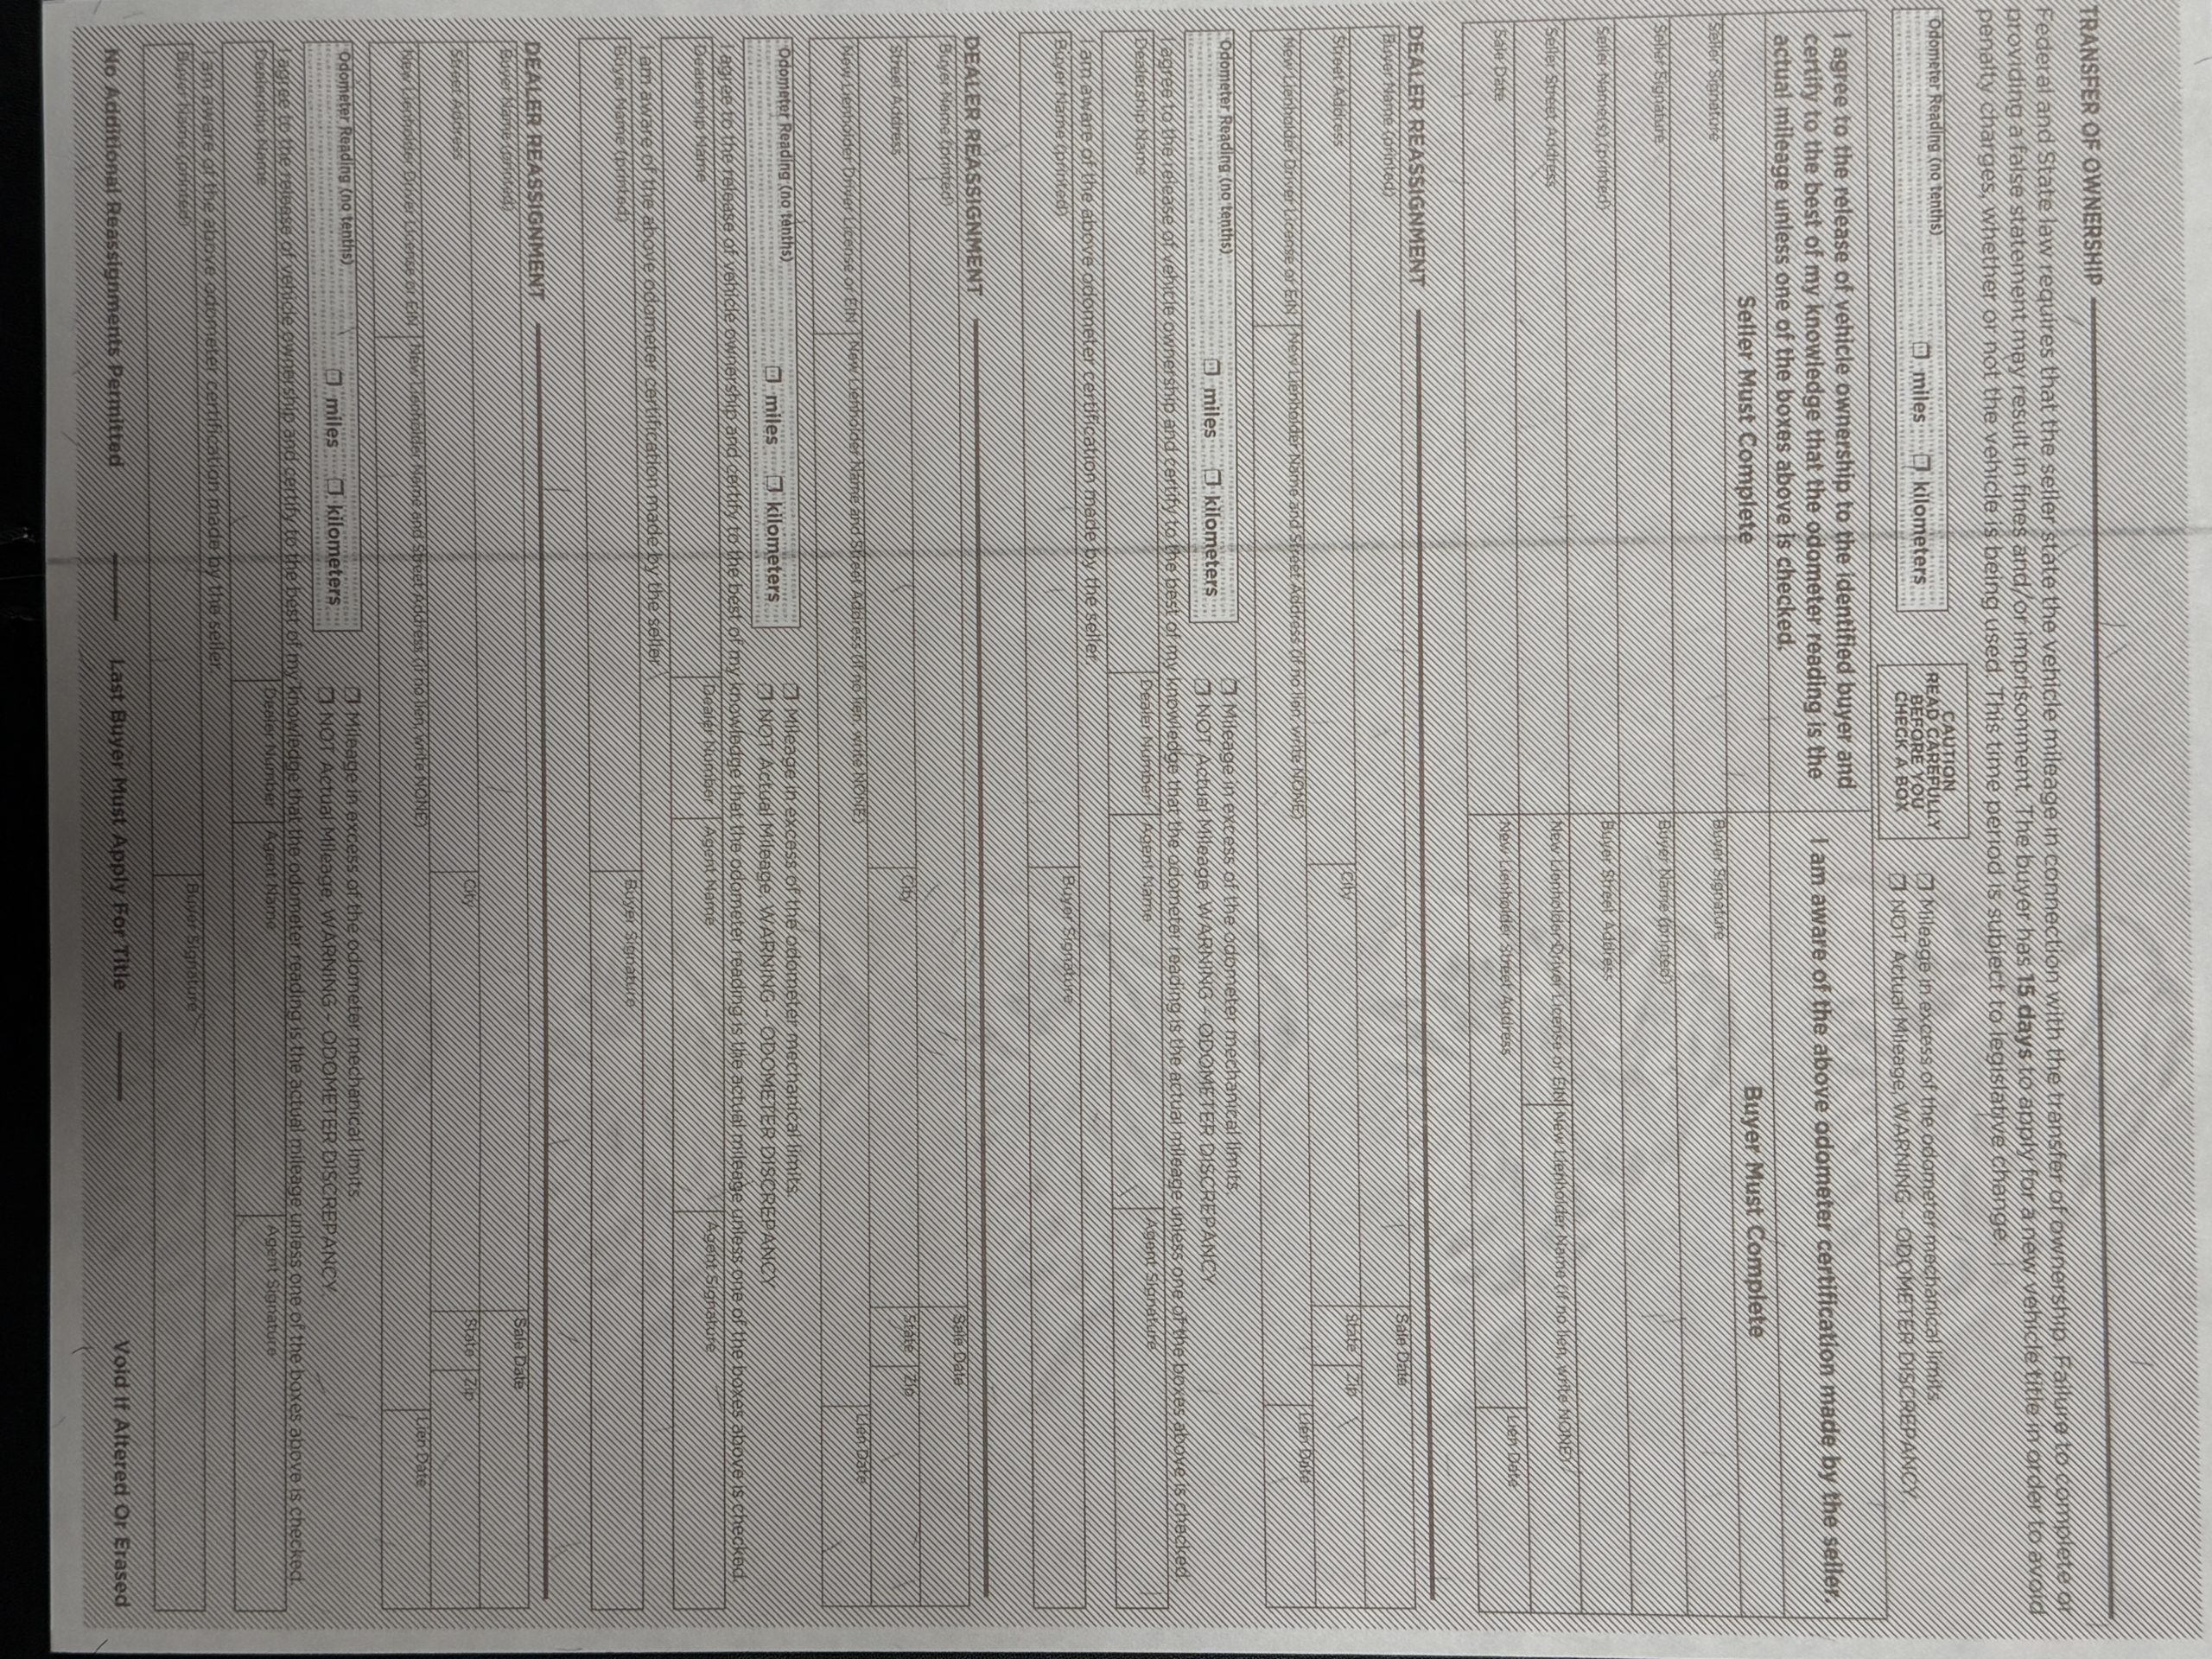 TRANSFER OF OWNERSHIP
Federal and State law requires that the seller state the vehicle mileage in connection with the transfer of ownership. Failure to complete or
providing a false statement may result in fines and/or imprisonment. The buyer has 15 days to apply for a new vehicle title in order to avoid
penalty charges, whether or not the vehicle is being used. This time period is subject to legislative change.
Odometer Reading (no tenths)
❏ miles ❏ kilometers
CAUTION
READ CAREFULLY
BEFORE YOU
CHECK A BOX
❏ Mileage in excess of the odometer mechanical limits.
❏ NOT Actual Mileage, WARNING - ODOMETER DISCREPANCY.
I agree to the release of vehicle ownership to the identified buyer and
certify to the best of my knowledge that the odometer reading is the
actual mileage unless one of the boxes above is checked.
I am aware of the above odometer certification made by the seller.
Seller Must Complete
Buyer Must Complete
Seller Signature
Buyer Signature
Seller Signature
Buyer Name (printed)
Seller Name(s) (printed)
Buyer Street Address
Seller Street Address
New Lienholder Driver License or EIN
New Lienholder Name (if no lien, write NONE)
Sale Date
New Lienholder Street Address
Lien Date
DEALER REASSIGNMENT
Buyer Name (printed)
Sale Date
Street Address
City
State
Zip
New Lienholder Driver License or EIN
New Lienholder Name and Street Address (if no lien, write NONE)
Lien Date
Odometer Reading (no tenths)
❏ miles ❏ kilometers
❏ Mileage in excess of the odometer mechanical limits.
❏ NOT Actual Mileage, WARNING - ODOMETER DISCREPANCY.
I agree to the release of vehicle ownership and certify to the best of my knowledge that the odometer reading is the actual mileage unless one of the boxes above is checked.
Dealership Name
Dealer Number
Agent Name
Agent Signature
I am aware of the above odometer certification made by the seller.
Buyer Name (printed)
Buyer Signature
DEALER REASSIGNMENT
Buyer Name (printed)
Sale Date
Street Address
City
State
Zip
New Lienholder Driver License or EIN
New Lienholder Name and Street Address (if no lien, write NONE)
Lien Date
Odometer Reading (no tenths)
❏ miles ❏ kilometers
❏ Mileage in excess of the odometer mechanical limits.
❏ NOT Actual Mileage, WARNING - ODOMETER DISCREPANCY.
I agree to the release of vehicle ownership and certify to the best of my knowledge that the odometer reading is the actual mileage unless one of the boxes above is checked.
Dealership Name
Dealer Number
Agent Name
Agent Signature
I am aware of the above odometer certification made by the seller.
Buyer Name (printed)
Buyer Signature
DEALER REASSIGNMENT
Buyer Name (printed)
Sale Date
Street Address
City
State
Zip
New Lienholder Driver License or EIN
New Lienholder Name and Street Address (if no lien, write NONE)
Lien Date
Odometer Reading (no tenths)
❏ miles ❏ kilometers
❏ Mileage in excess of the odometer mechanical limits.
❏ NOT Actual Mileage, WARNING - ODOMETER DISCREPANCY.
I agree to the release of vehicle ownership and certify to the best of my knowledge that the odometer reading is the actual mileage unless one of the boxes above is checked.
Dealership Name
Dealer Number
Agent Name
Agent Signature
I am aware of the above odometer certification made by the seller.
Buyer Name (printed)
Buyer Signature
No Additional Reassignments Permitted —— Last Buyer Must Apply For Title —— Void If Altered Or Erased